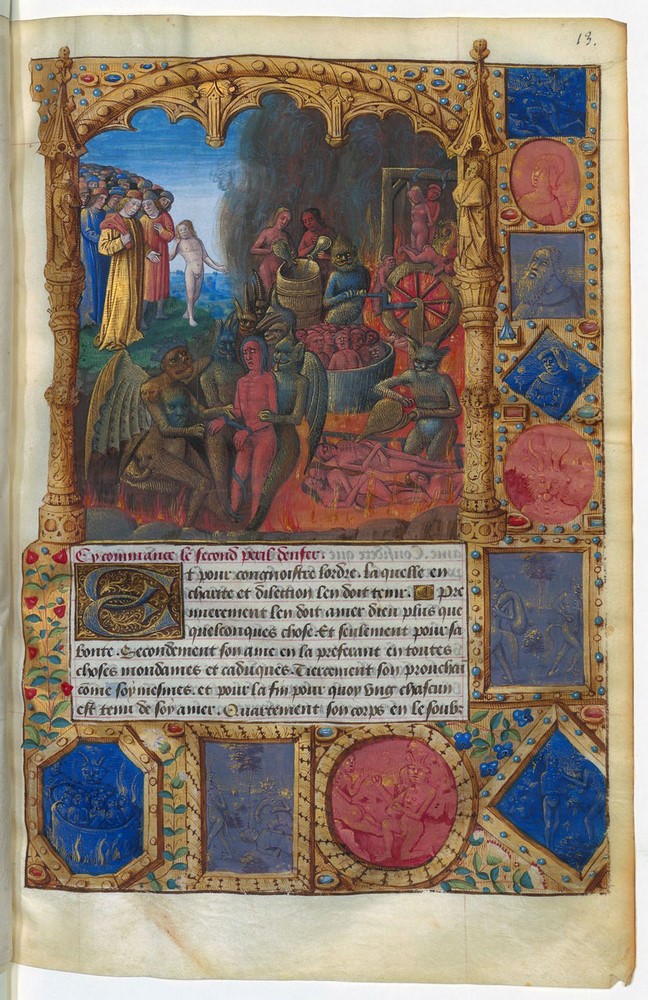 13.
Cy commance le second peril denfer.
Et pour congnoistre lordre. la quelle en
charite et dilection len doit tenir. Pre
mierement len doit amer dieu plus que
quelconques chose. Et seulement pour sa
bonte. Secondement son ame en la preferant en toutes
choses mondames et caduques. Tiercement son prouchai
come soy mesmes. et pour la fin pour quoy ung chascun
est tenu de soy amer. Quartement son corps en le soub